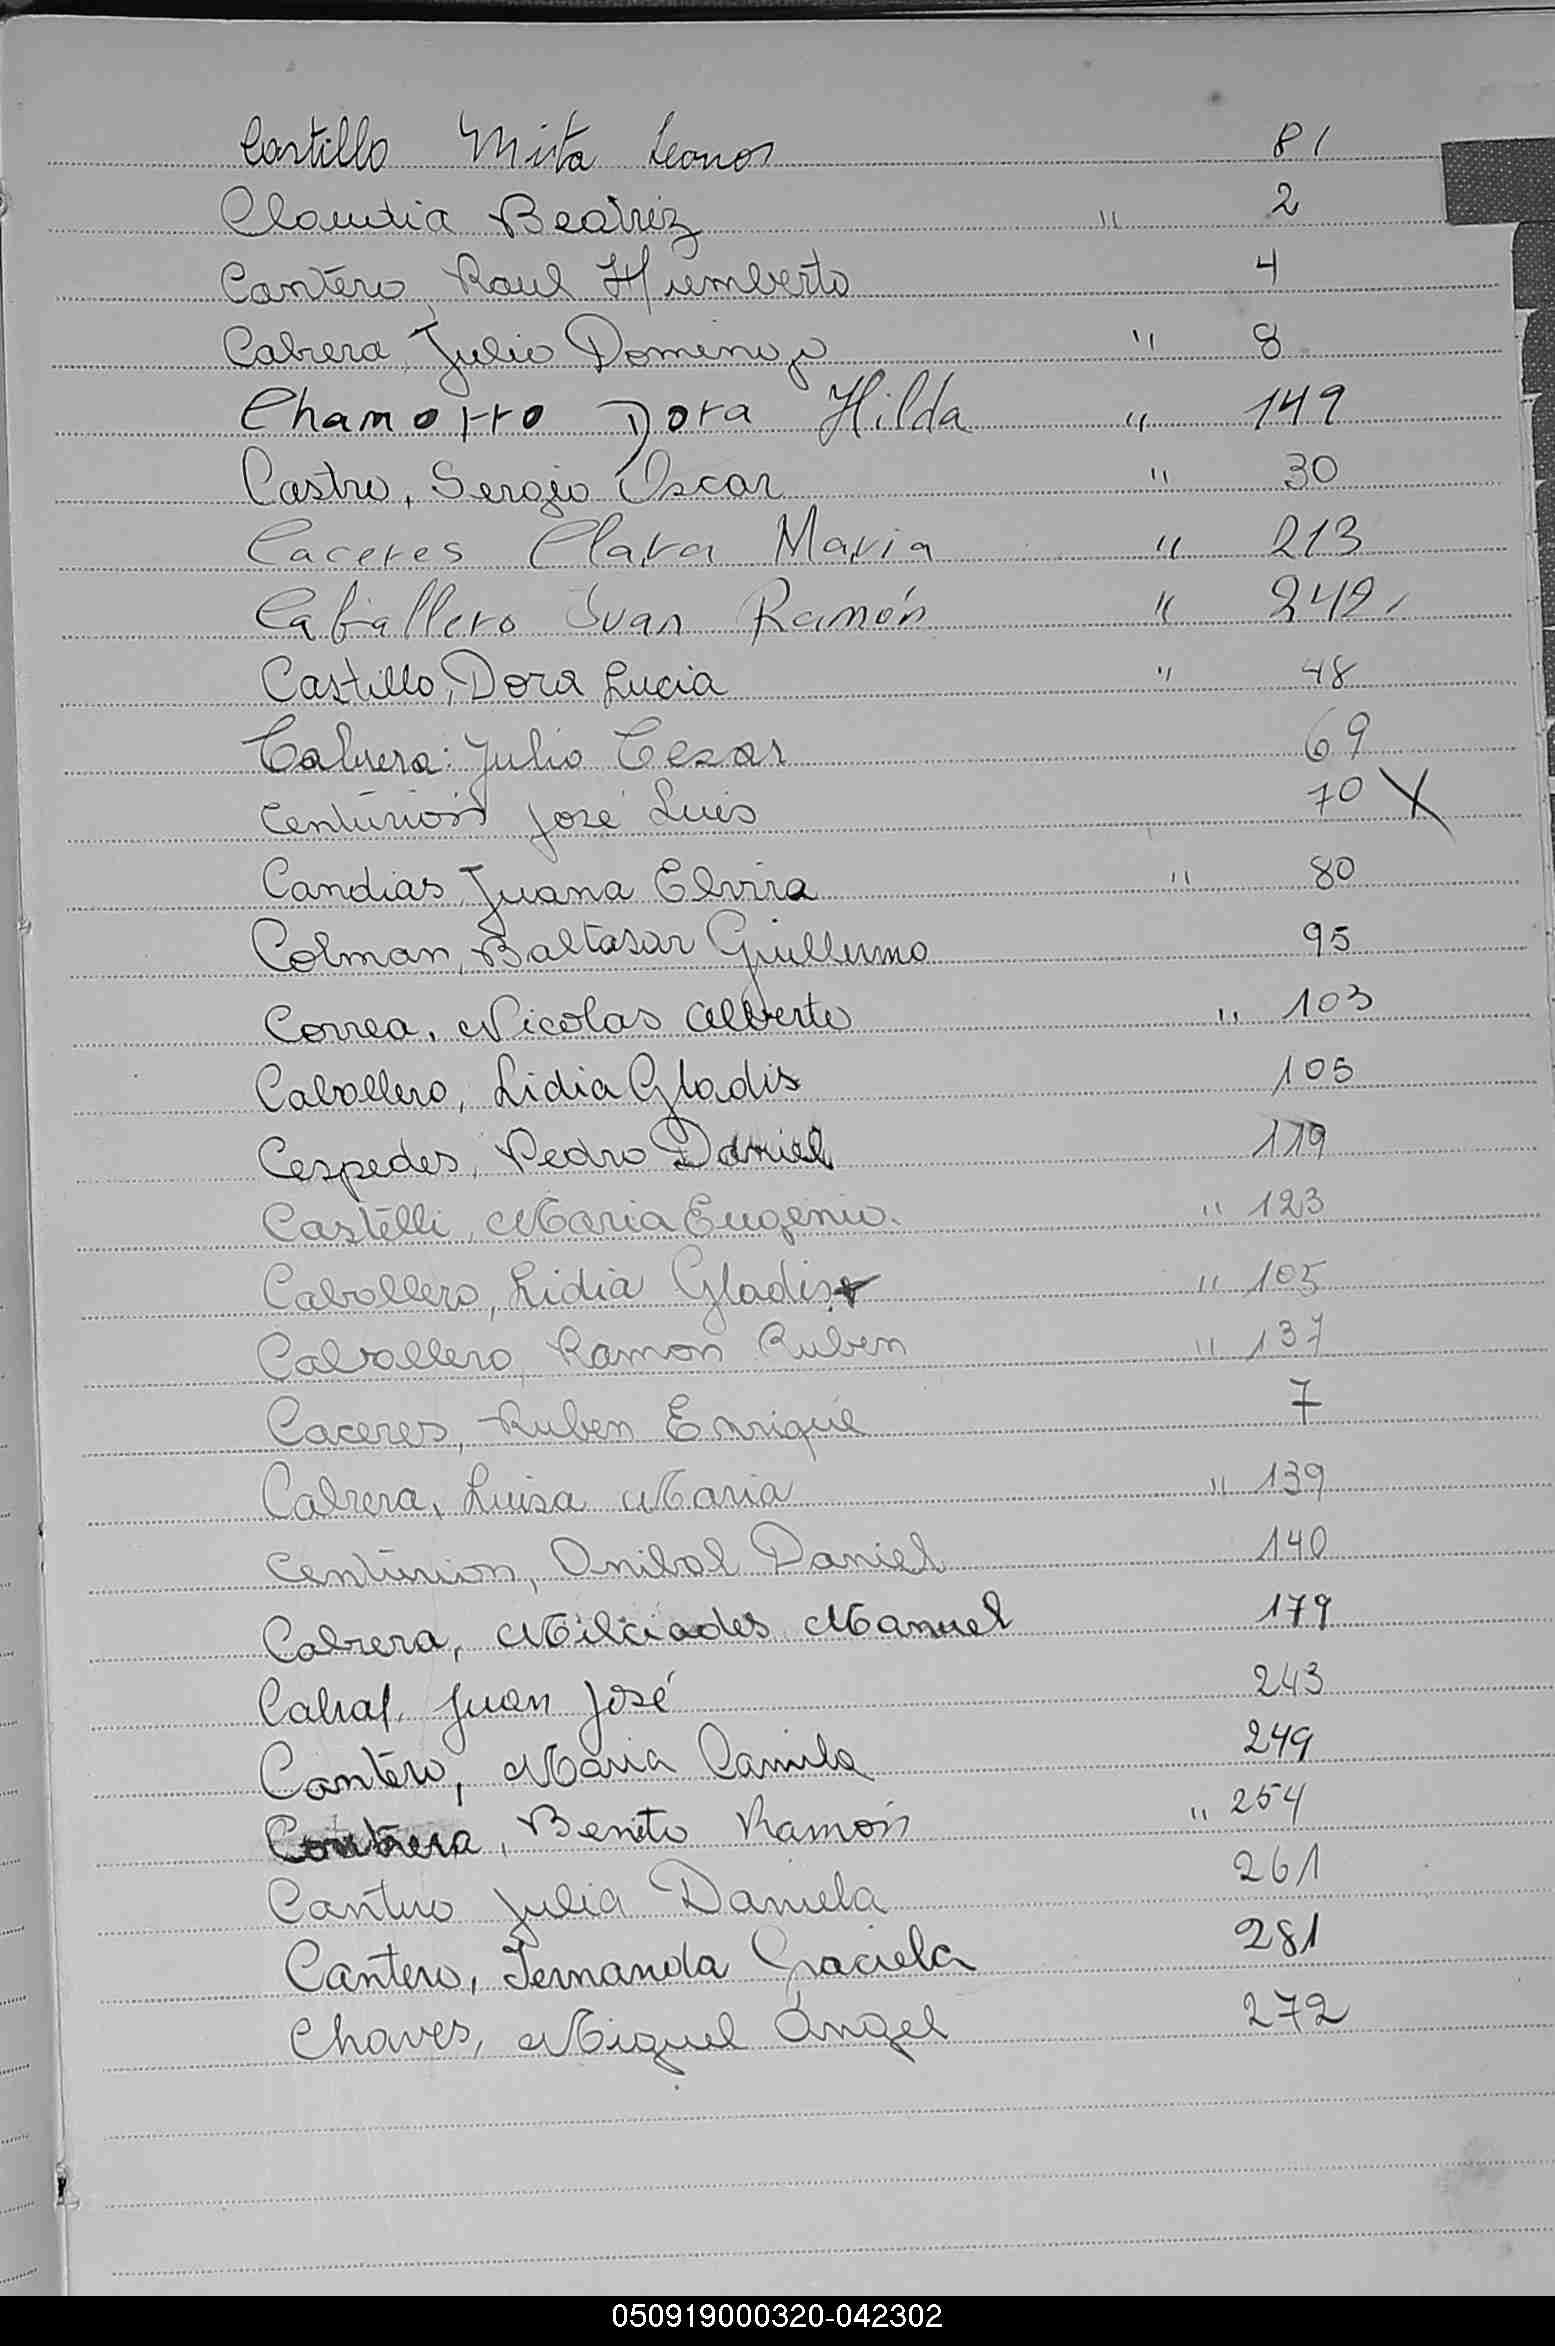 Castillo Mirta Leonor 81
Claudia Beatriz " 2
Cantero, Raul Humberto 4
Cabrera, Julio Domingo " 8
Chamorro Dora Hilda " 149
Castro, Sergio Oscar " 30
Caceres Clara Maria " 213
Caballero Juan Ramón " 242
Castillo, Dora Lucia " 48
Cabrera: Julio Cesar 69
Centurión José Luis 70 X
Candias, Juana Elvira " 80
Colman, Baltasar Guillermo 95
Correa, Nicolas Alberto " 103
Caballero, Lidia Gladis 105
Cespedes, Pedro Daniel 119
Castelli, Maria Eugenio. " 123
Caballero, Lidia Gladis " 105
Caballero, Ramon Ruben " 137
Caceres, Ruben Enrique 7
Cabrera, Luisa Maria " 139
Centurion, Anibal Daniel 140
Cabrera, Milciades Manuel 179
Cabral, Juan José 243
Cantero, Maria Camila 249
Contrera, Benito Ramón " 254
Cantero Julia Daniela 261
Cantero, Fernanda Graciela 281
Chaves, Miguel Ángel 272
050919000320-042302